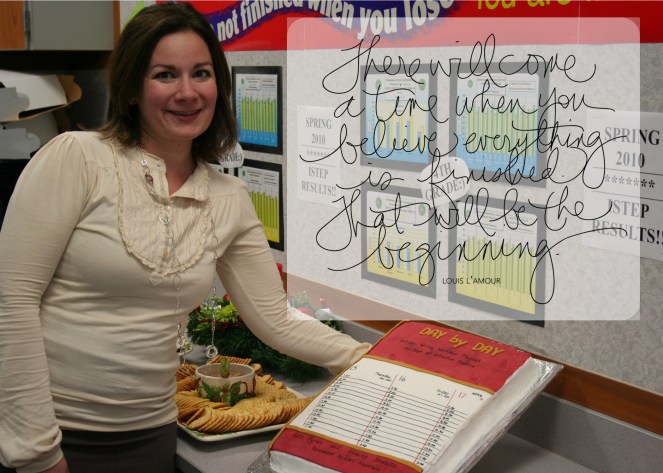 not finished when you lose
You are
There will come
a time when you
believe everything
is finished.
That will be the
beginning.
LOUIS L'AMOUR
SPRING
2010
*****
ISTEP
RESULTS!!
GRADE:)
7TH
GRADE:)
SPRING
2010
*******
ISTEP
RESULTS!!
DAY by DAY
Thursday
16
17